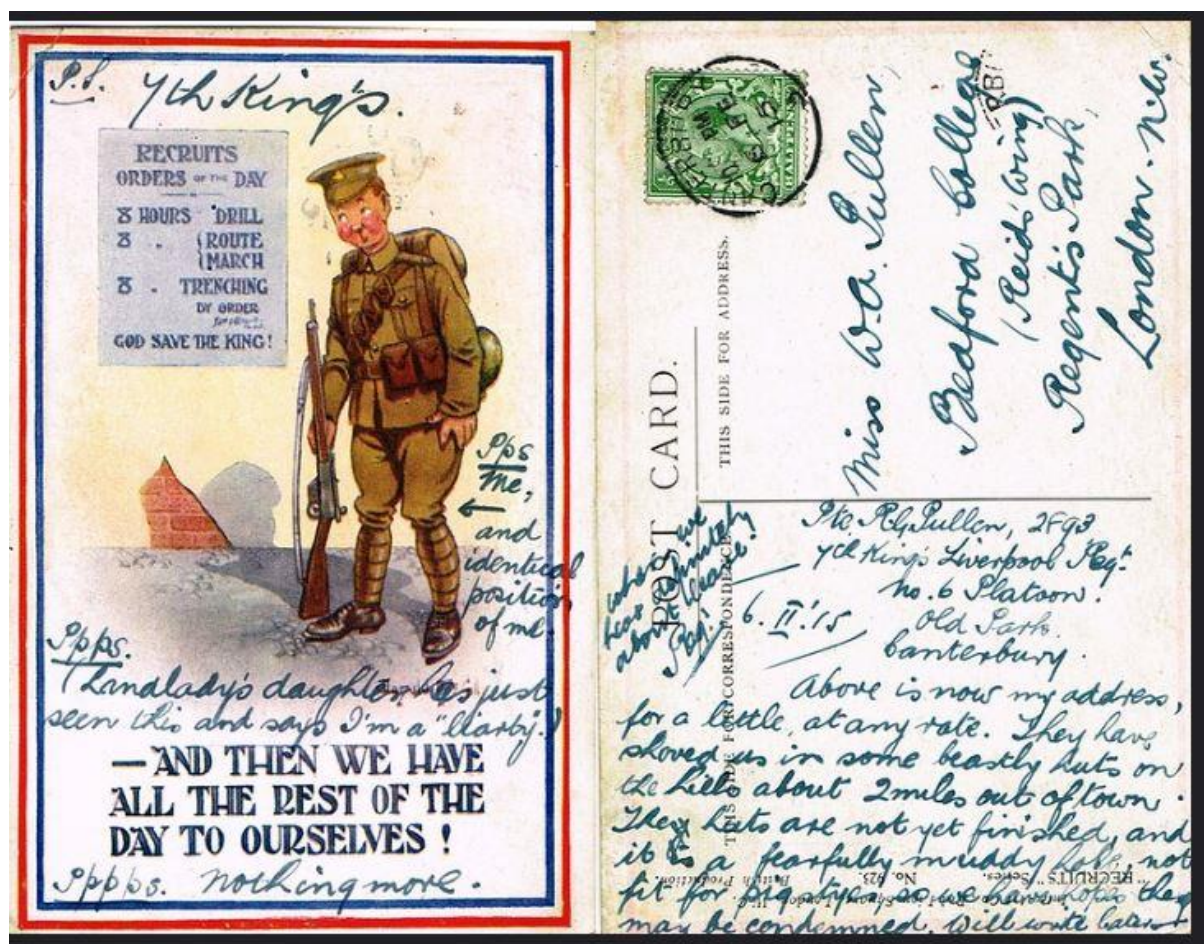 P.S. 7th King's.
RECRUITS
ORDERS OF THE DAY
8 HOURS DRILL
8 . {ROUTE
{MARCH
8 . TRENCHING
BY ORDER
GOD SAVE THE KING!
Pps
me,
←
and
identical
position
of me.
Ppps.
(Landlady's daughter has just
seen this and says I'm a "liarby".)
—AND THEN WE HAVE
ALL THE REST OF THE
DAY TO OURSELVES!
Pppps. nothing more.
CANTERBURY
PM
FE
15
HALFPENNY
Miss W.A. Pullen
Bedford College
(Reid's Wing)
Regent's Park,
London. N.W.
POST CARD.
THIS SIDE FOR ADDRESS.
THIS SIDE FOR CORRESPONDENCE
Pte R.G. Pullen, 2893
7th King's Liverpool Regt.
No. 6 Platoon.
6. II. '15 Old Park.
Canterbury.
Above is now my address,
for a little, at any rate. They have
shoved us in some beastly huts on
the hills about 2 miles out of town.
They huts are not yet finished, and
it is a fearfully muddy hole, not
fit for pigstyes, so we have hopes they
may be condemned. Will write later
when we
hear definitely
about leave.
Reg.
"RECRUITS" Series. No. 925. British Production.
London, W.C.